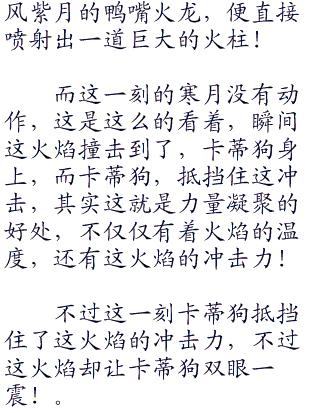 风紫月的鸭嘴火龙，便直接
喷射出一道巨大的火柱！
而这一刻的寒月没有动
作，这是这么的看着，瞬间
这火焰撞击到了，卡蒂狗身
上，而卡蒂狗，抵挡住这冲
击，其实这就是力量凝聚的
好处，不仅仅有着火焰的温
度，还有这火焰的冲击力！
不过这一刻卡蒂狗抵挡
住了这火焰的冲击力，不过
这火焰却让卡蒂狗双眼一
震！。